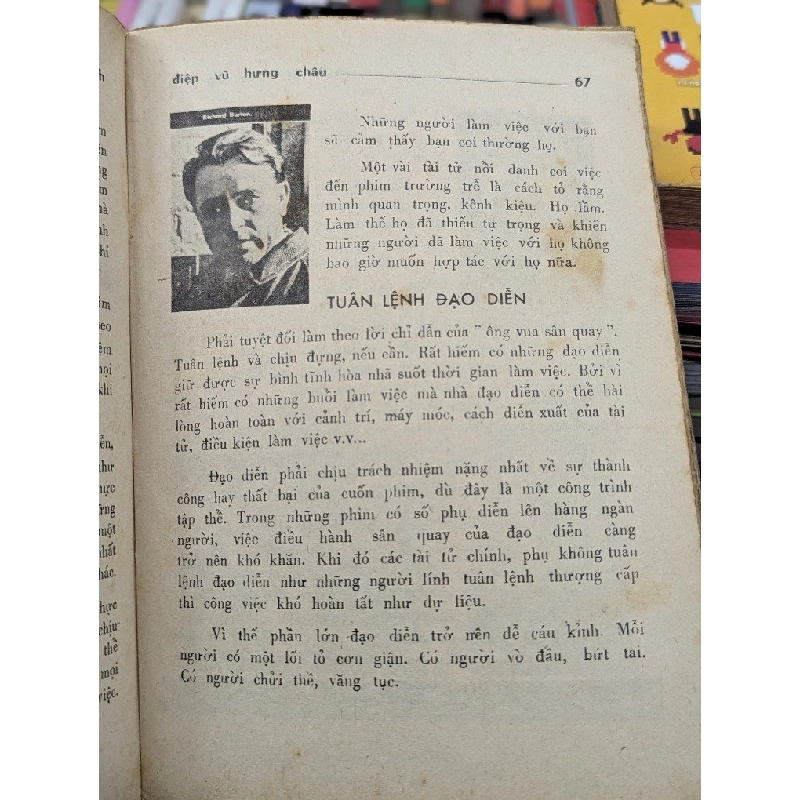 điệp vũ hưng châu 67
Richard Burton.
Những người làm việc với bạn
sẽ cảm thấy bạn coi thường họ.
Một vài tài tử nổi danh coi việc
đến phim trường trễ là cách tỏ rằng
mình quan trọng, kênh kiệu. Họ lầm.
Làm thế họ đã thiếu tự trọng và khiến
những người đã làm việc với họ không
bao giờ muốn hợp tác với họ nữa.
TUÂN LỆNH ĐẠO DIỄN
Phải tuyệt đối làm theo lời chỉ dẫn của " ông vua sân quay ".
Tuân lệnh và chịu đựng, nếu cần. Rất hiếm có những đạo diễn
giữ được sự bình tĩnh hòa nhã suốt thời gian làm việc. Bởi vì
rất hiếm có những buổi làm việc mà nhà đạo diễn có thể hài
lòng hoàn toàn với cảnh trí, máy móc, cách diễn xuất của tài
tử, điều kiện làm việc v.v...
Đạo diễn phải chịu trách nhiệm nặng nhất về sự thành
công hay thất bại của cuốn phim, dù đây là một công trình
tập thể. Trong những phim có số phụ diễn lên hàng ngàn
người, việc điều hành sân quay của đạo diễn càng
trở nên khó khăn. Khi đó các tài tử chính, phụ không tuân
lệnh đạo diễn như những người lính tuân lệnh thượng cấp
thì công việc khó hoàn tất như dự liệu.
Vì thế phần lớn đạo diễn trở nên dễ cáu kỉnh. Mỗi
người có một lối tỏ cơn giận. Có người vò đầu, bứt tai.
Có người chửi thề, văng tục.